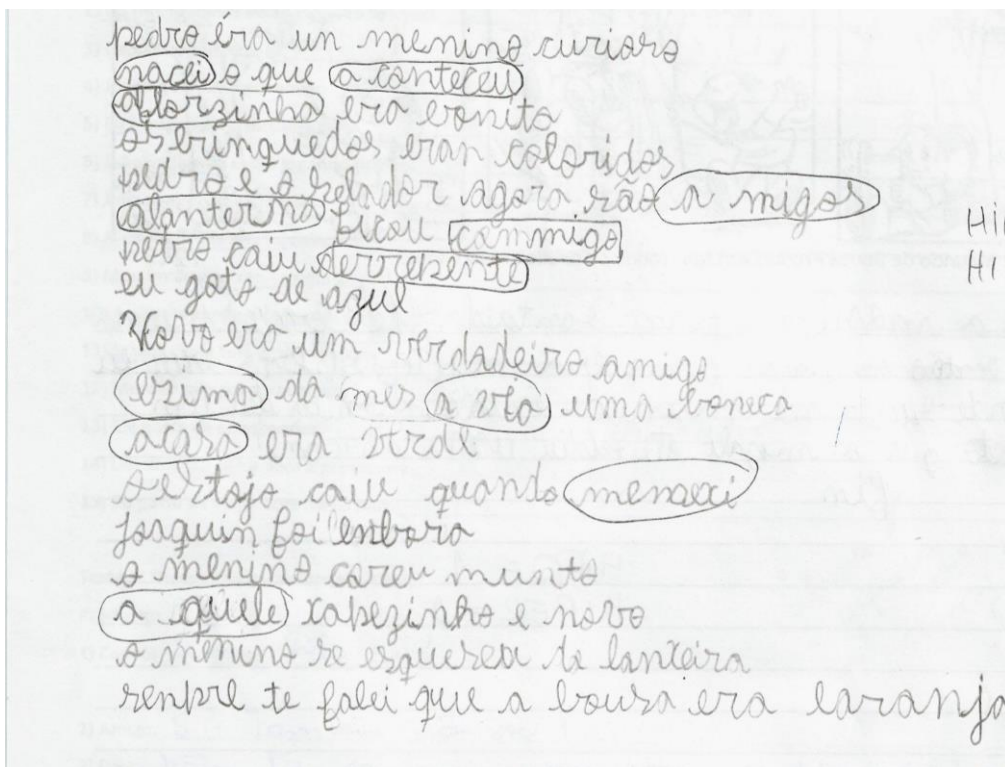 pedro éra un menino curioso
nacei o que a conteceu
aflorzinha era bonita
os brinquedos eran coloridos
pedro e o zelador agora são a migos
alanterna ficou cammigo
pedro caiu derrepente
eu goto de azul
era um verdadeiro amigo
da ines a vio uma boneca
acasa era verde
caiu quando menxeci
joaquin foi enbora
o menino correu munto
a quele xapezinho e novo
o menino se esqueseu da lanxeira
senpre te falei que a bousa era laranja
Hi
Hi